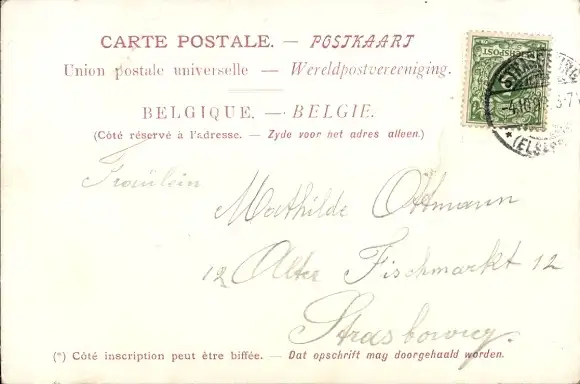 CARTE POSTALE. — POSTKAART
Union postale universelle — Wereldpostvereeniging.
BELGIQUE. — BELGIE.
(Côté réservé à l'adresse. — Zyde voor het adres alleen.)
REICHSPOST
Fräulein
Mathilde Ottmann
12 Alter Fischmarkt 12
Strasbourg.
(*) Côté inscription peut être biffée. — Dat opschrift may doorgehaald worden.